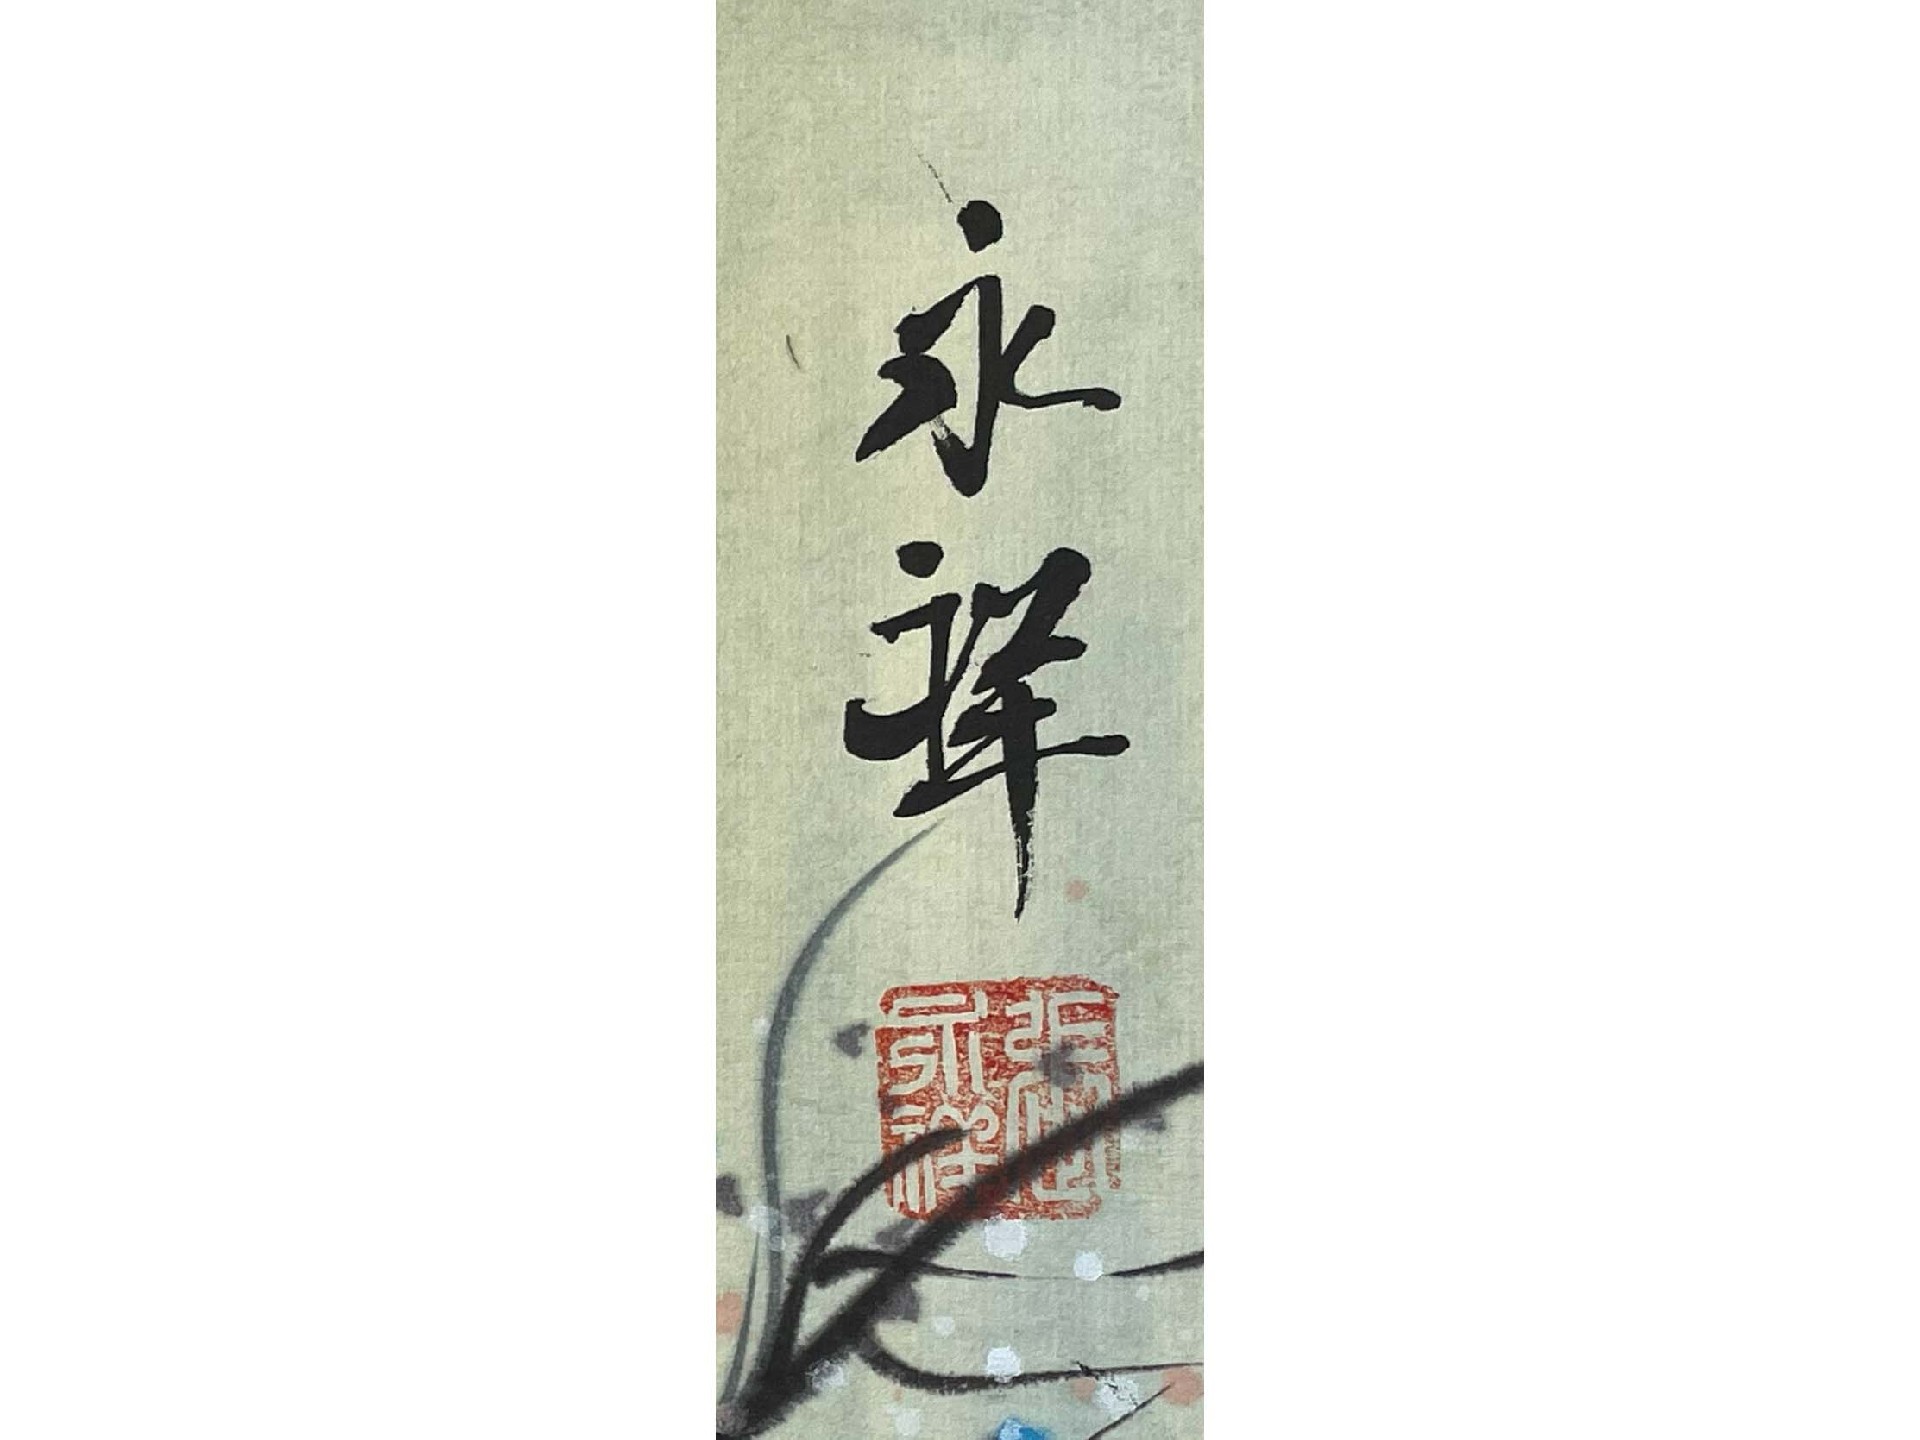 永祥
永祥